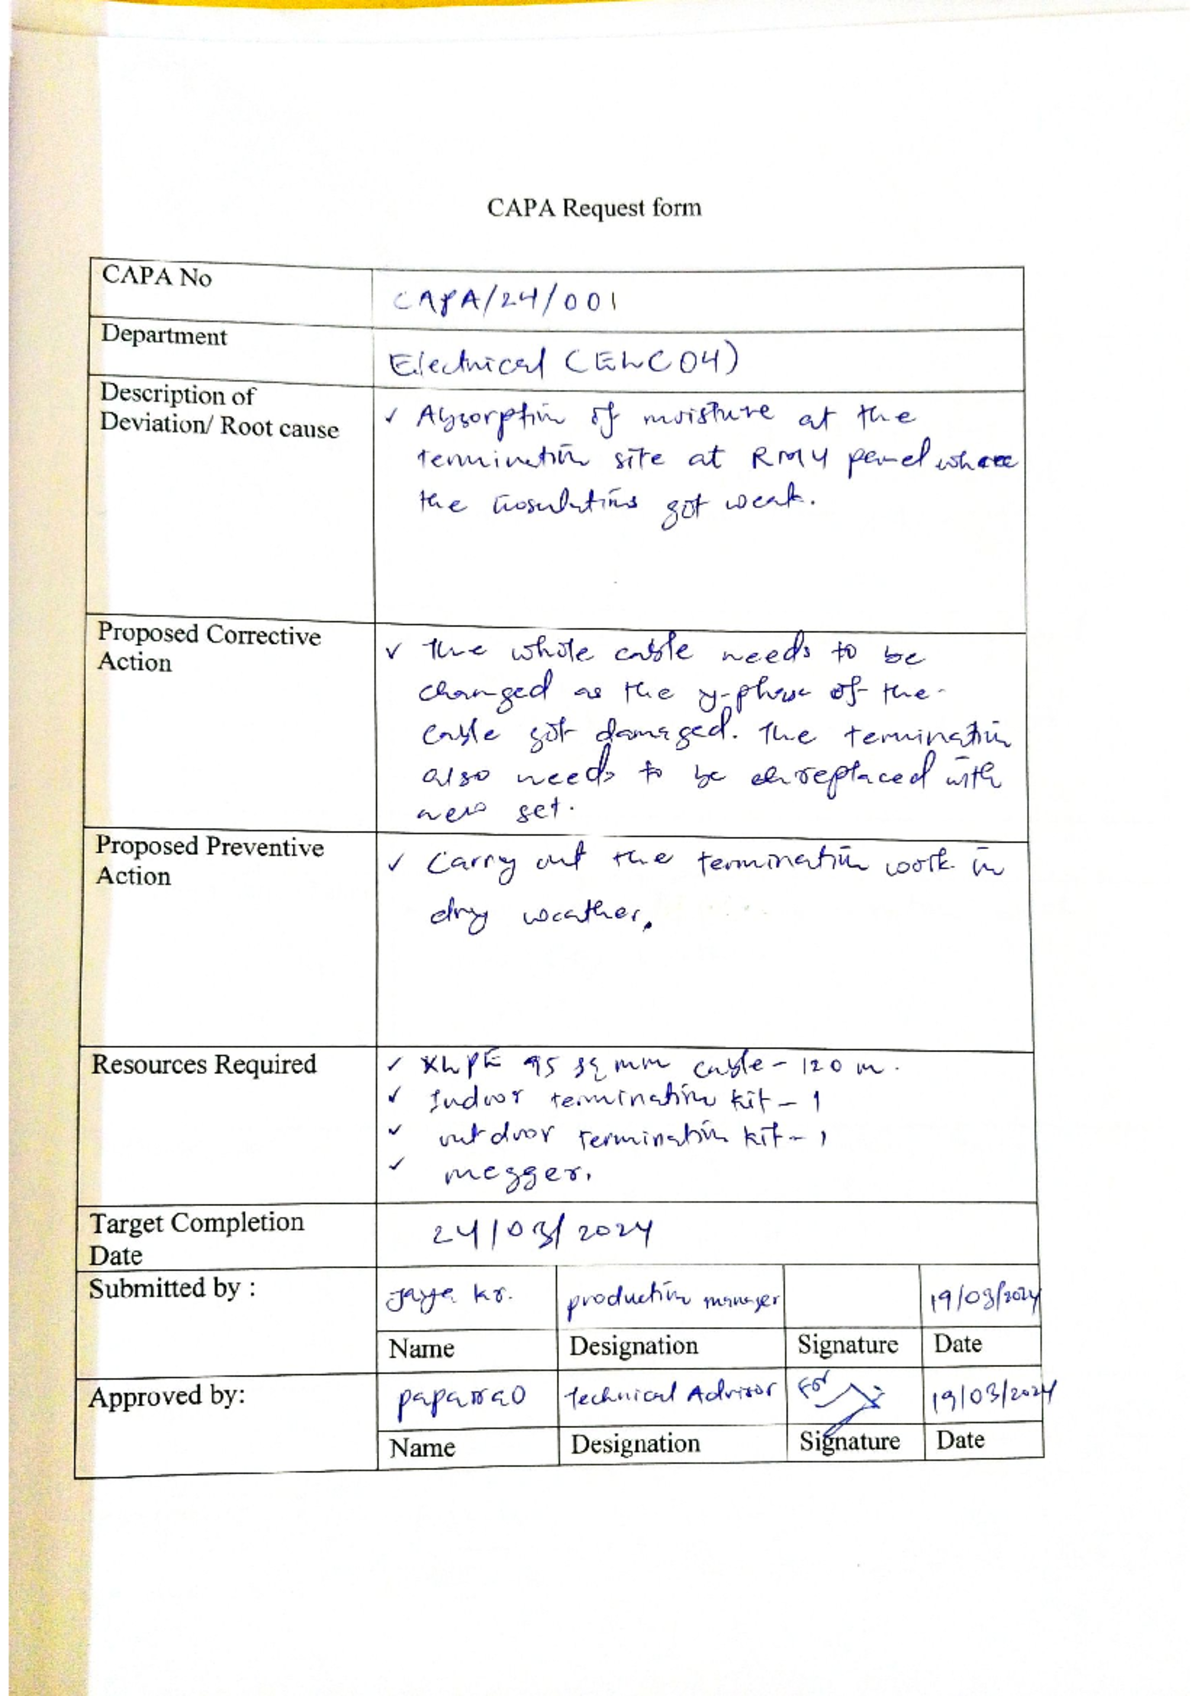 CAPA Request form
CAPA No
CAPA/24/001
Department
Electrical (ELC04)
Description of
Deviation/ Root cause
✓ Absorption of moisture at the
termination site at RMU panel where
the insulations got weak.
Proposed Corrective
Action
✓ The whole cable needs to be
changed as the y-phase of the
cable got damaged. The termination
also needs to be replaced with
new set.
Proposed Preventive
Action
✓ Carry out the termination work in
dry weather.
Resources Required
✓ XLPE 95 sq mm cable - 120 m.
✓ Indoor termination kit - 1
✓ outdoor termination kit - 1
✓ megger.
Target Completion
Date
24/03/2024
Submitted by :
Jaya kr. production manager 19/03/2024
Name Designation Signature Date
Approved by:
paparao Technical Advisor For 19/03/2024
Name Designation Signature Date